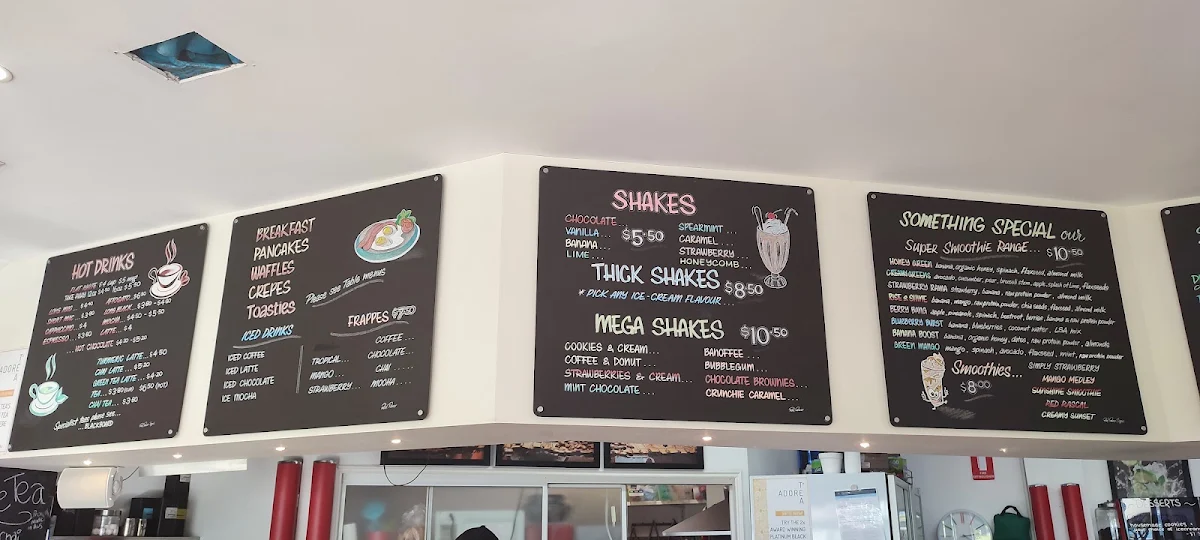 HOT DRINKS
CHAI LATTE... $5.20
GREEN TEA LATTE... $4.20
CHAI TEA... $3.80
Specialist teas please see...
...BLACKBOARD
BREAKFAST
PANCAKES
WAFFLES
CREPES
Toasties
Please see Table menus
ICED DRINKS
ICED COFFEE
ICED LATTE
ICED CHOCOLATE
ICE MOCHA
FRAPPES $7.50
TROPICAL...
MANGO...
STRAWBERRY...
COFFEE...
CHOCOLATE...
CHAI...
MOCHA...
SHAKES
CHOCOLATE
VANILLA...
BANANA...
LIME...
$5.50
SPEARMINT...
CARAMEL...
STRAWBERRY...
HONEYCOMB...
THICK SHAKES $8.50
* PICK ANY ICE-CREAM FLAVOUR...
MEGA SHAKES $10.50
COOKIES & CREAM...
COFFEE & DONUT...
STRAWBERRIES & CREAM...
MINT CHOCOLATE...
BANOFFEE...
BUBBLEGUM...
CHOCOLATE BROWNIES...
CRUNCHIE CARAMEL...
SOMETHING SPECIAL our
SUPER SMOOTHIE RANGE... $10.50
HONEY GREEN banana, organic honey, spinach, flaxseed, almond milk
CREAM GREENS avocado, cucumber, pear, broccoli stem, apple, splash of lime, flaxseeds
STRAWBERRY RAMA strawberry, banana, raw protein powder, almond milk
RISE & SHINE banana, mango, raw protein powder, chia seeds, flaxseed, almond milk
BERRY BANG apple, pineapple, spinach, beetroot, berries, banana & raw protein powder
BLUEBERRY BURST banana, blueberries, coconut water, LSA mix
BANANA BOOST banana, organic honey, dates, raw protein powder, almonds
GREEN MANGO mango, spinach, avocado, flaxseed, mint, raw protein powder
Smoothies...
$8.00
SIMPLY STRAWBERRY
MANGO MEDLEY
SUNSHINE SMOOTHIE
RED RASCAL
CREAMY SUNSET
Tea
ADORE
TRY THE 8x
AWARD WINNING
PLATINUM BLACK
DESSERTS ~